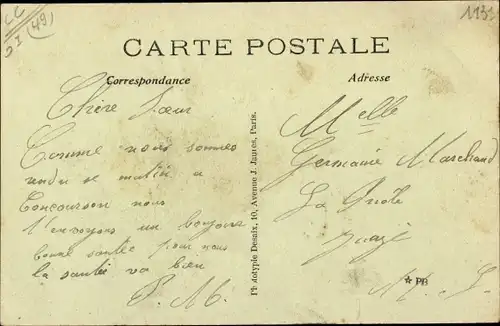 CC
(49)
1135
CARTE POSTALE
Correspondance
Adresse
Chère Sœur
Comme nous sommes
rendu se matin a
Concourson nous
t'envoyons un bonjour
bonne santée pour nous
la santée va bien
P. M.
Phototypie Desaix, 10, Avenue J. Janvs, Paris.
Melle
Germaine Marchand
La
M. L.
★ PB